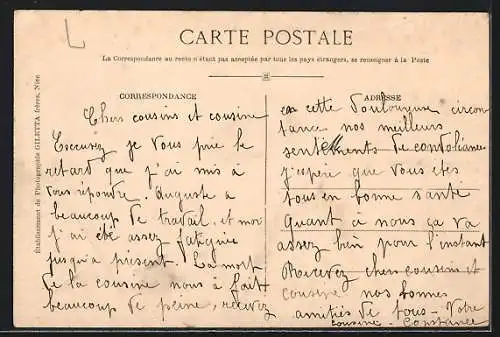 CARTE POSTALE
La Correspondance au recto n'étant pas acceptée par tous les pays étrangers, se renseigner à la Poste
CORRESPONDANCE
Chers cousins et cousine
Excusez je vous prie le
retard que j'ai mis à
vous répondre. Auguste a
beaucoup de travail. et moi
j'ai été assez fatiguée
jusqu'a present. La mort
de la cousine nous à fait
beaucoup de peine, recevez
ADRESSE
en cette douloureuse circon
tance nos meilleurs
sentiments de condoléances
J'espère que vous etes
tous en bonne santé
Quant à nous ça va
assez bien pour l'instant
Recevez chers cousins et
cousine nos bonnes
amitiés de tous. Votre
cousine. Constance
Établissement de Photographie GILETTA frères, Nice